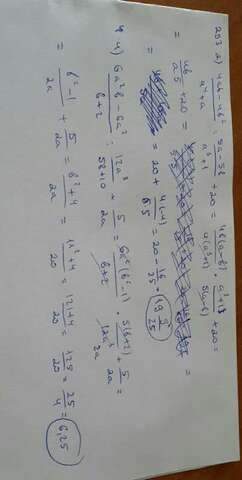 253 2) (4ab-4b²)/(a⁴+a) : (5a-5b)/(a³+1) + 20 = 4b(a-b)/(a³+1) · (a³+1)/5(a-b) + 20 =
= 4b/a5 + 20 = =
= = 20 + = 20 - 16/25 = 19 9/25
4) (6a²b-6a²)/(b+2) : 12a³/(5b+10) + 5/2a = 6a²(b²-1)/(b+2) · 5(b+2)/12a³ + 5/2a =
= (b²-1)/2a + 5/2a = (b²+4)/2a = (11²+4)/20 = (121+4)/20 = 125/20 = 25/4 = 6,25